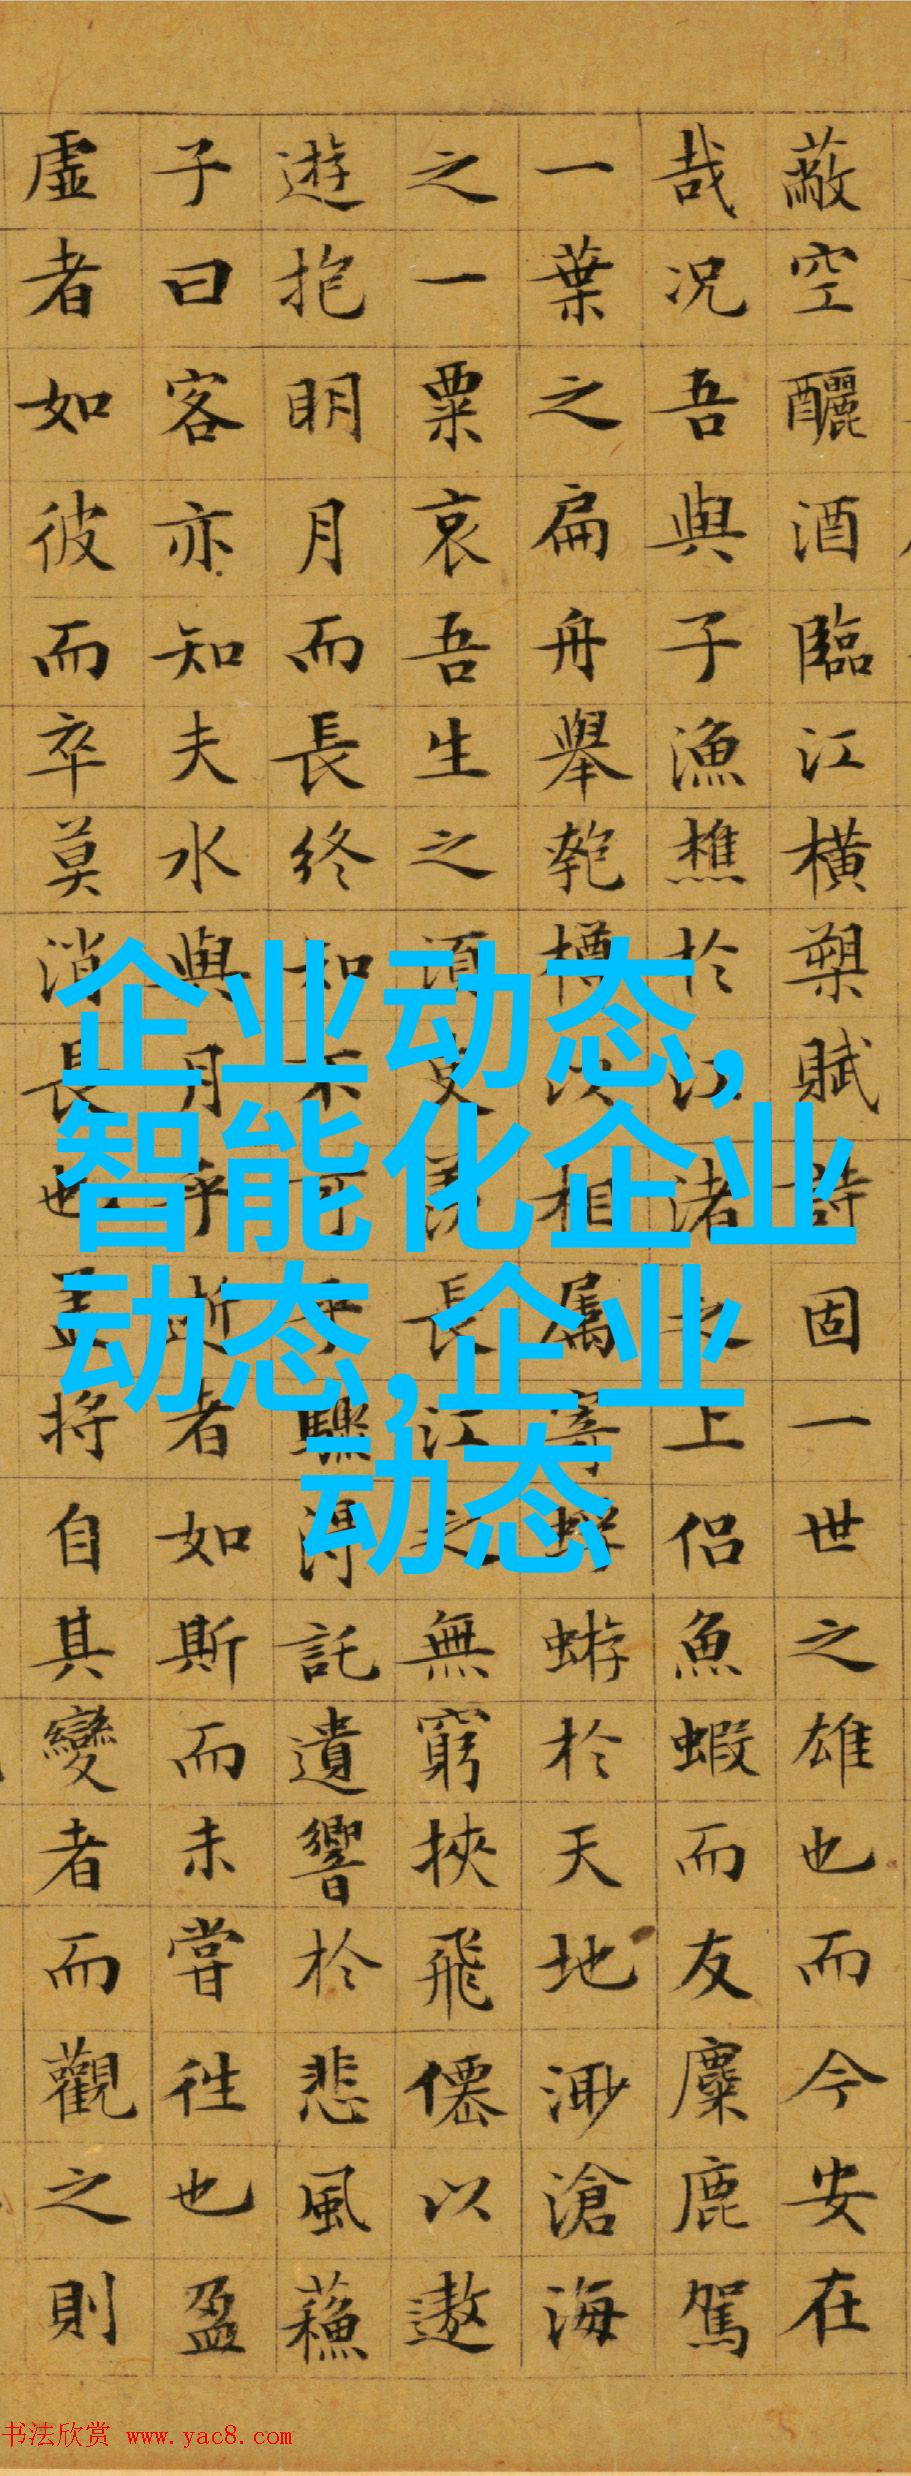 蔽空釃酒臨江橫槊賦詩固一世之雄也而今安在
哉况吾與子漁樵於江渚之上侶魚蝦而友麋鹿駕
一葉之扁舟舉匏樽以相属寄蜉蝣於天地渺滄海
之一粟哀吾生之須臾羨長江之無窮挾飛僊以遨
遊抱明月而長終知不可乎驟得託遺響於悲風蘓
子曰客亦知夫水與月乎逝者如斯而未嘗往也盈
虛者如彼而卒莫消長也盖將自其變者而觀之則
企业动态,
智能化企业
动态,企业
动态
书法欣赏 www.yac8.com